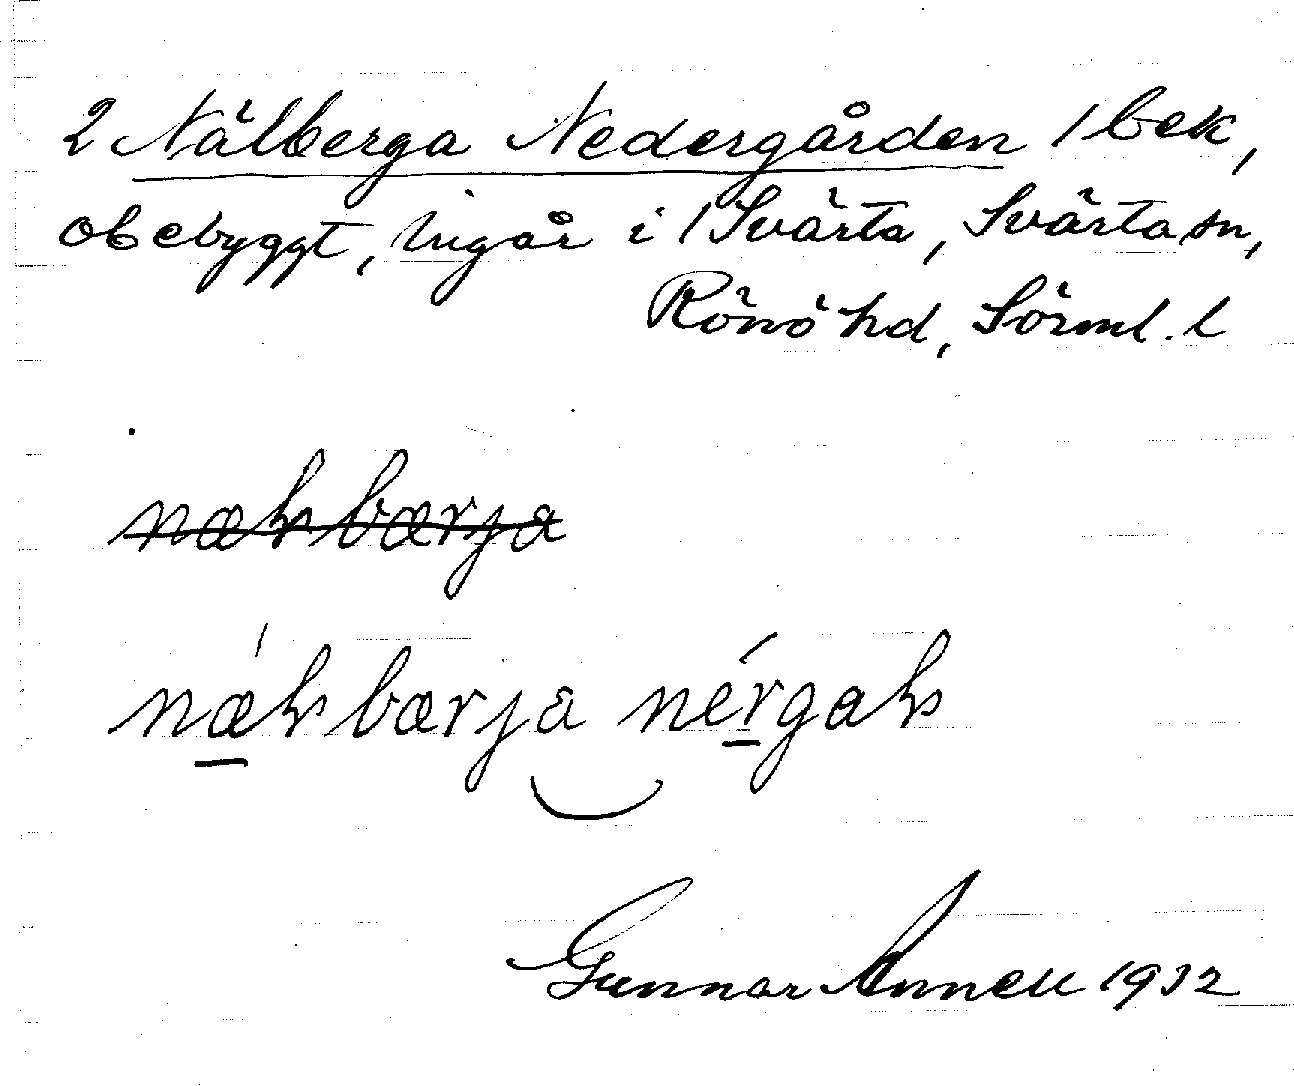 2 Nälberga Nedergården / bek,
obebyggt, Ingår i / Svärta, Svärta sn,
Rönö hd, Sörml. l
næɫbærja
nǽɫbærja nérgaɫ
Gunnar Annell 1932